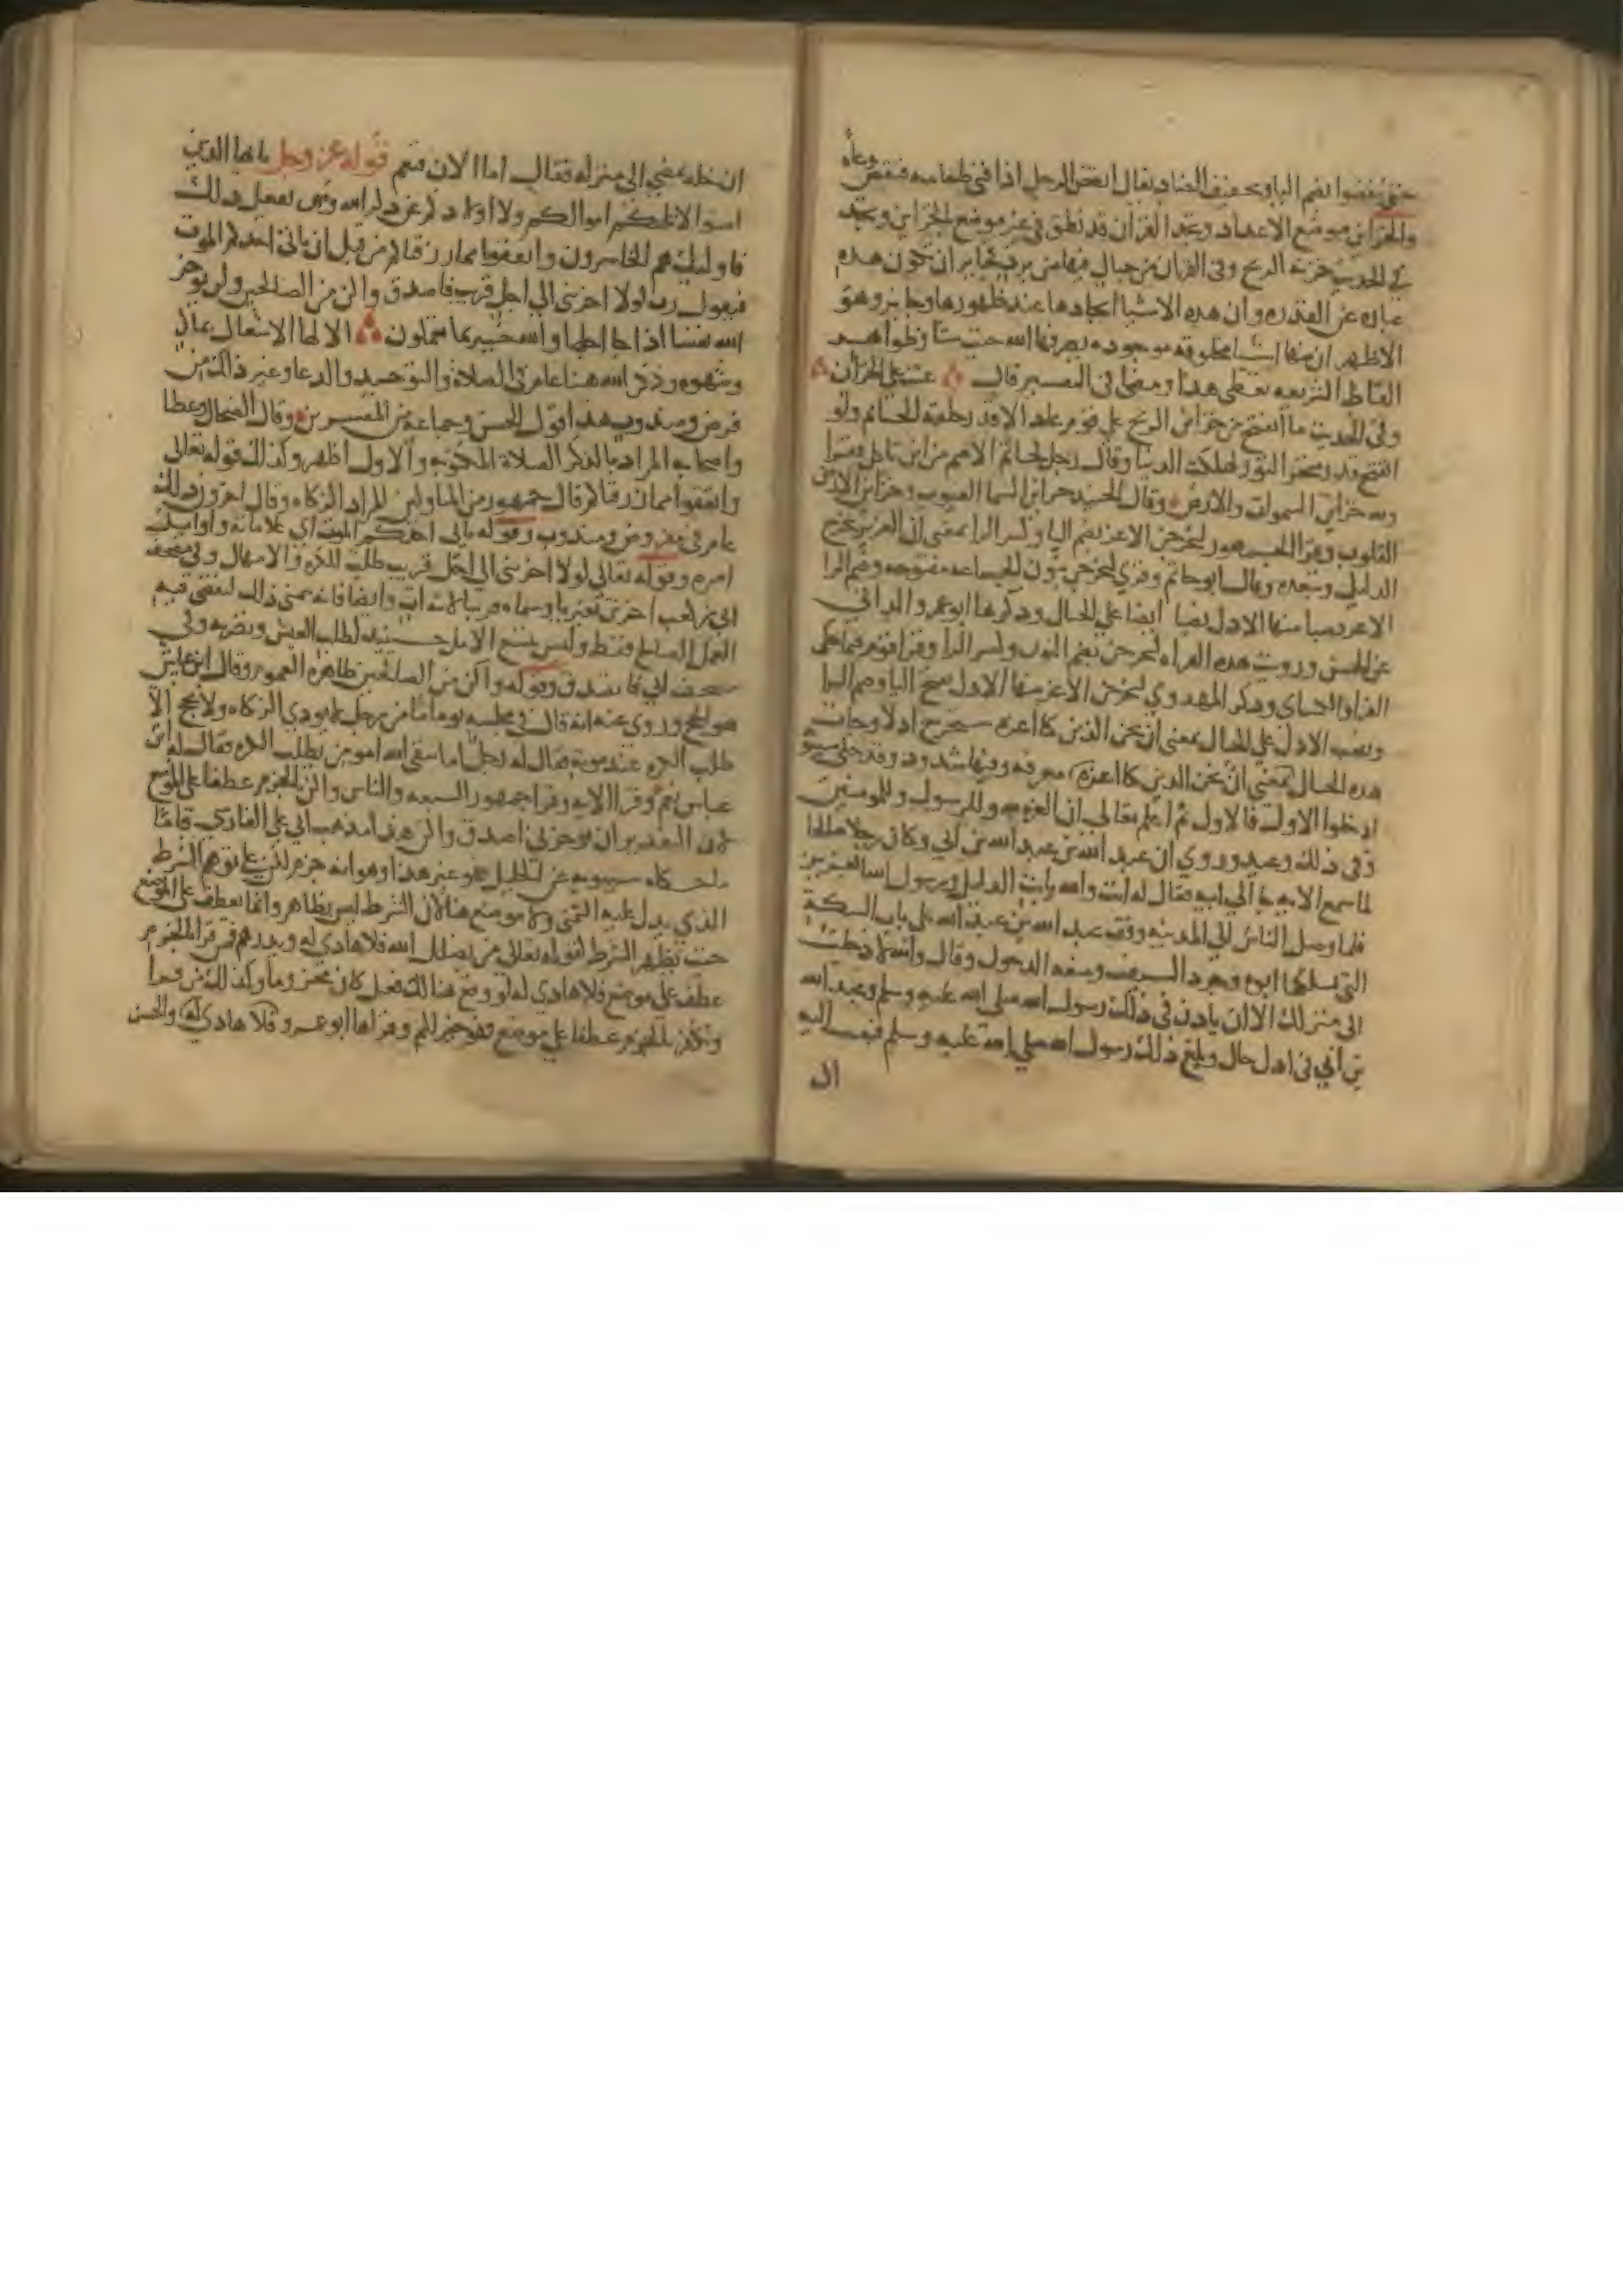 حتى ينفضوا بضم اليا وتخفيف الضاد يقال انفض الرجل اذا فني طعامه فنفض وعاه
والخزاين موضع الاعداد ونجد القران قد نطق في غير موضع بالخزاين ونجد
في الحديث خزنة الريح وفي القران من جبال فيها من برد فجايز ان تكون هذه
عباره عن القدره وان هذه الاشيا ايجادها عند ظهورها وجايز وهو
الاظهر ان منها اشيا مخلوقه موجوده يصرفها الله حيث شا وظواهر
الفاظ الشريعه تعطي هذا ومعناه في التفسير قال عتت على الخزان
وفي الحديث ما انفتح من خزاين الريح على قوم عاد الا قدر حلقة الخاتم ولو
انفتح قدر منخر الثور لهلكت الدنيا وقال رجل لحاتم الاصم من اين تاكل فقرا
ولله خزاين السموات والارض وقال الجنيد خزاين السما الغيوب وخزاين الارض
القلوب وقرا الجمهور ليخرجن الاعز بضم اليا وكسر الرا بمعنى ان العزيز يخرج
الذليل ويبعده وقال ابو حاتم وقري لنخرجن بنون الجماعه مفتوحه وضم الرا
الاعز نصبا منها الاذل نصبا ايضا على الحال وذكرها ابو عمرو الداني
عن الحسن ورويت هذه القراه لنخرجن بضم النون وكسر الرا وقرا قوم فيما حكى
الفرا والكساي وذكر المهدوي ليخرجن الاعز منها الاذل بفتح اليا وضم الرا
ونصب الاذل على الحال بمعنى ان نحن الذين كنا اعزه سنخرج اذلا وجات
هذه الحال بمعنى ان نحن الذين كنا اعزه معرفه وفيها شذوذ وقد حكى سيبويه
ادخلوا الاول فالاول ثم اعلم تعالى ان العزه لله وللرسول وللمومنين
وفي ذلك وعيد وروي ان عبد الله بن عبد الله بن ابي وكان رجلا صالحا
لما سمع الايه جا الى ابيه فقال له انت والله يا ابت الذليل ورسول الله العزيز
فلما وصل الناس الى المدينه وقف عبد الله بن عبد الله على باب السكة
التي يسلكها ابوه وجرد السيف ومنعه الدخول وقال والله لا دخلت
الى منزلك الا ان ياذن في ذلك رسول الله صلى الله عليه وسلم وعبد الله
بن ابي في اذل حال وبلغ ذلك رسول الله صلى الله عليه وسلم فبعث اليه
ان
ان خله يمضي الى منزله فقال اما الان فنعم قوله عز وجل يا ايها الذين
امنوا لا تلهكم اموالكم ولا اولادكم عن ذكر الله ومن يفعل ذلك
فاوليك هم الخاسرون وانفقوا مما رزقناكم من قبل ان ياتي احدكم الموت
فيقول رب لولا اخرتني الى اجل قريب فاصدق واكن من الصالحين ولن يوخر
الله نفسا اذا جا اجلها والله خبير بما تعملون الالها الاشتغال بملذ
وشهوه وذكر الله هنا عام في الصلاة والتوحيد والدعا وغير ذلك من
فرض ومندوب هذا قول الحسن وجماعه من المفسرين وقال الضحاك وعطا
واصحابه المراد بالذكر الصلاة المكتوبه والاول اظهر وكذلك قوله تعالى
وانفقوا مما رزقناكم قال جمهور من المتاولين المراد الزكاه وقال اخرون ذلك
عام في مفروض ومندوب وقوله ياتي احدكم الموت اي علاماته واوايل
امره وقوله تعالى لولا اخرتني الى اجل قريب طلب للكره والامهال وفي مصحف
ابي بن كعب اخرتن بغير يا وسماه قريبا لانه ات وايضا فانه يتمنى ذلك ليقضي فيه
العمل الصالح فقط وليس يتسع الامل حينيذ لطلب العيش ونضرته وفي
مصحف ابي فاتصدق وقوله واكن من الصالحين ظاهره العموم وقال ابن عباس
هو الحج وروي عنه انه قال في مجلسه يوما ما من رجل لا يودي الزكاه ولا يحج الا
طلب الكره عند موته فقال له رجل اما تتقي الله المومن يطلب الكره فقال له ابن
عباس نعم وقرا الايه وقرا جمهور السبعه والناس واكن بالجزم عطفا على الموضع
لان التقدير ان توخرني اصدق واكن هذا مذهب ابي علي الفارسي فاما
ما حكاه سيبويه عن الخليل فهو غير هذا وهو انه جزم اكن على توهم الشرط
الذي يدل عليه التمني ولا موضع هنا لان الشرط ليس بظاهر وانما يعطف على الموضع
حيث يظهر الشرط لقوله تعالى من يضلل الله فلا هادي له ويذرهم فمن قرا بالجزم
عطف على موضع فلا هادي له لو وقع هنالك فعل كان مجزوما وكذلك من قرا
ونكفر بالجزم عطفا على موضع فهو خير لكم وقراها ابو عمرو فلا هادي له والحسن